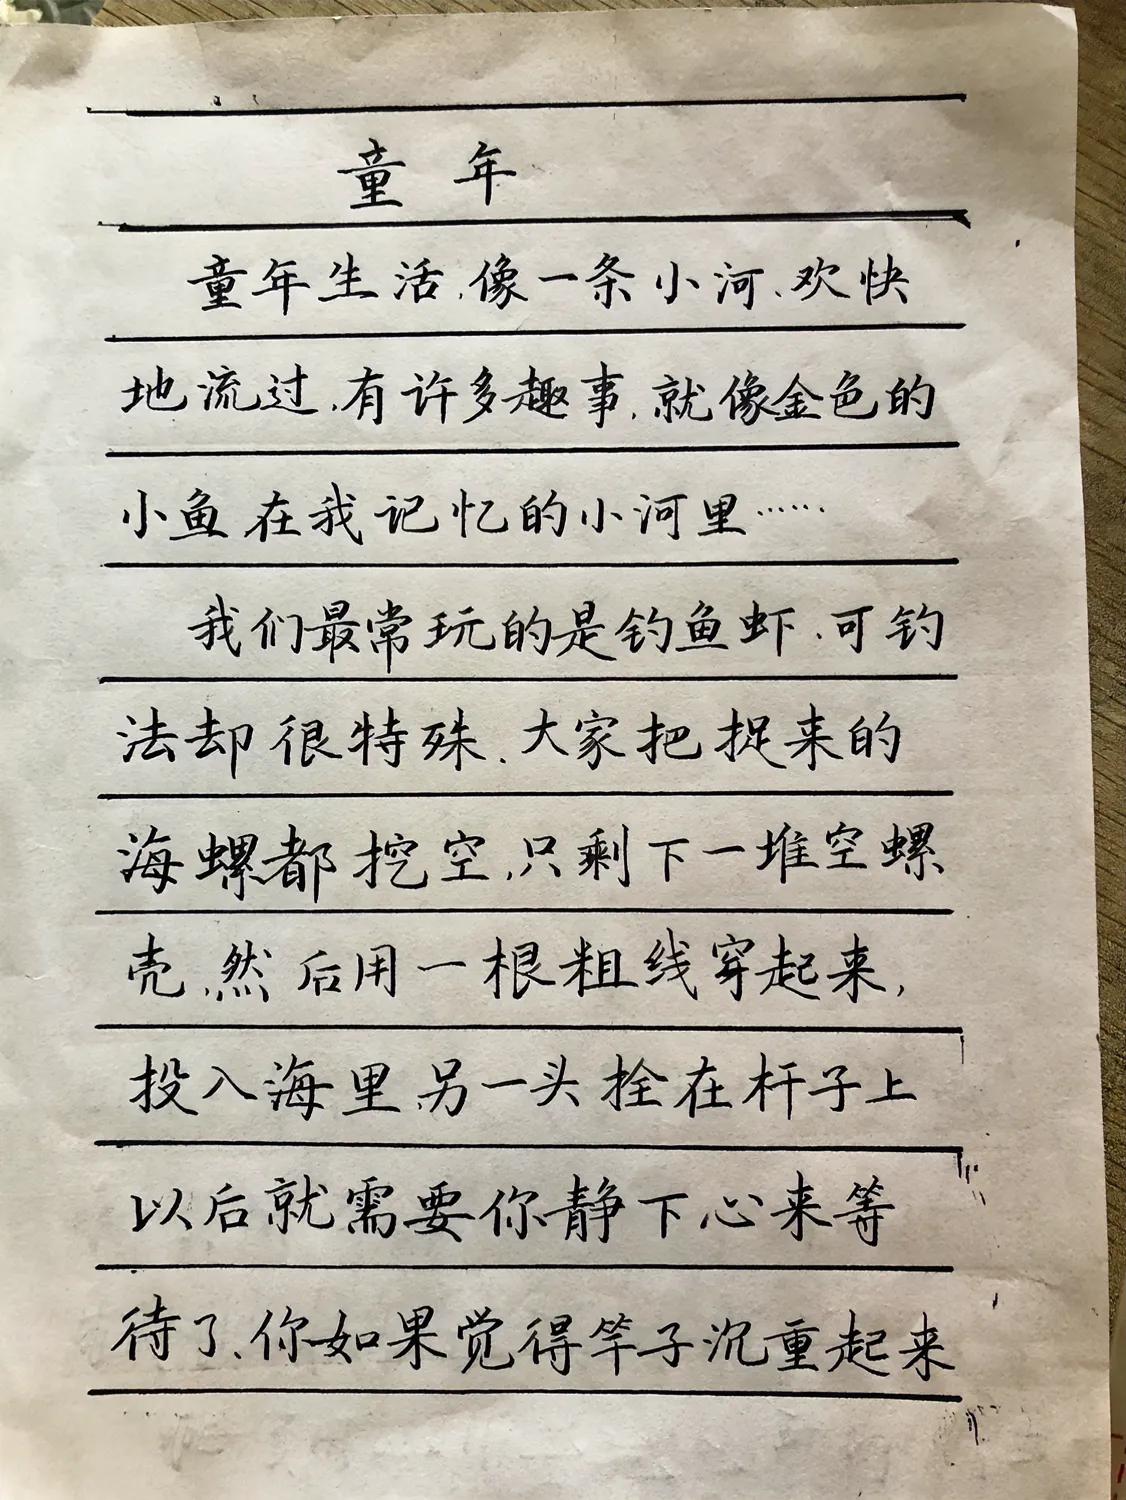 童年
童年生活、像一条小河、欢快
地流过、有许多趣事、就像金色的
小鱼在我记忆的小河里……
我们最常玩的是钓鱼虾、可钓
法却很特殊、大家把捉来的
海螺都挖空、只剩下一堆空螺
壳、然后用一根粗线穿起来,
投入海里、另一头拴在杆子上
以后就需要你静下心来等
待了、你如果觉得竿子沉重起来